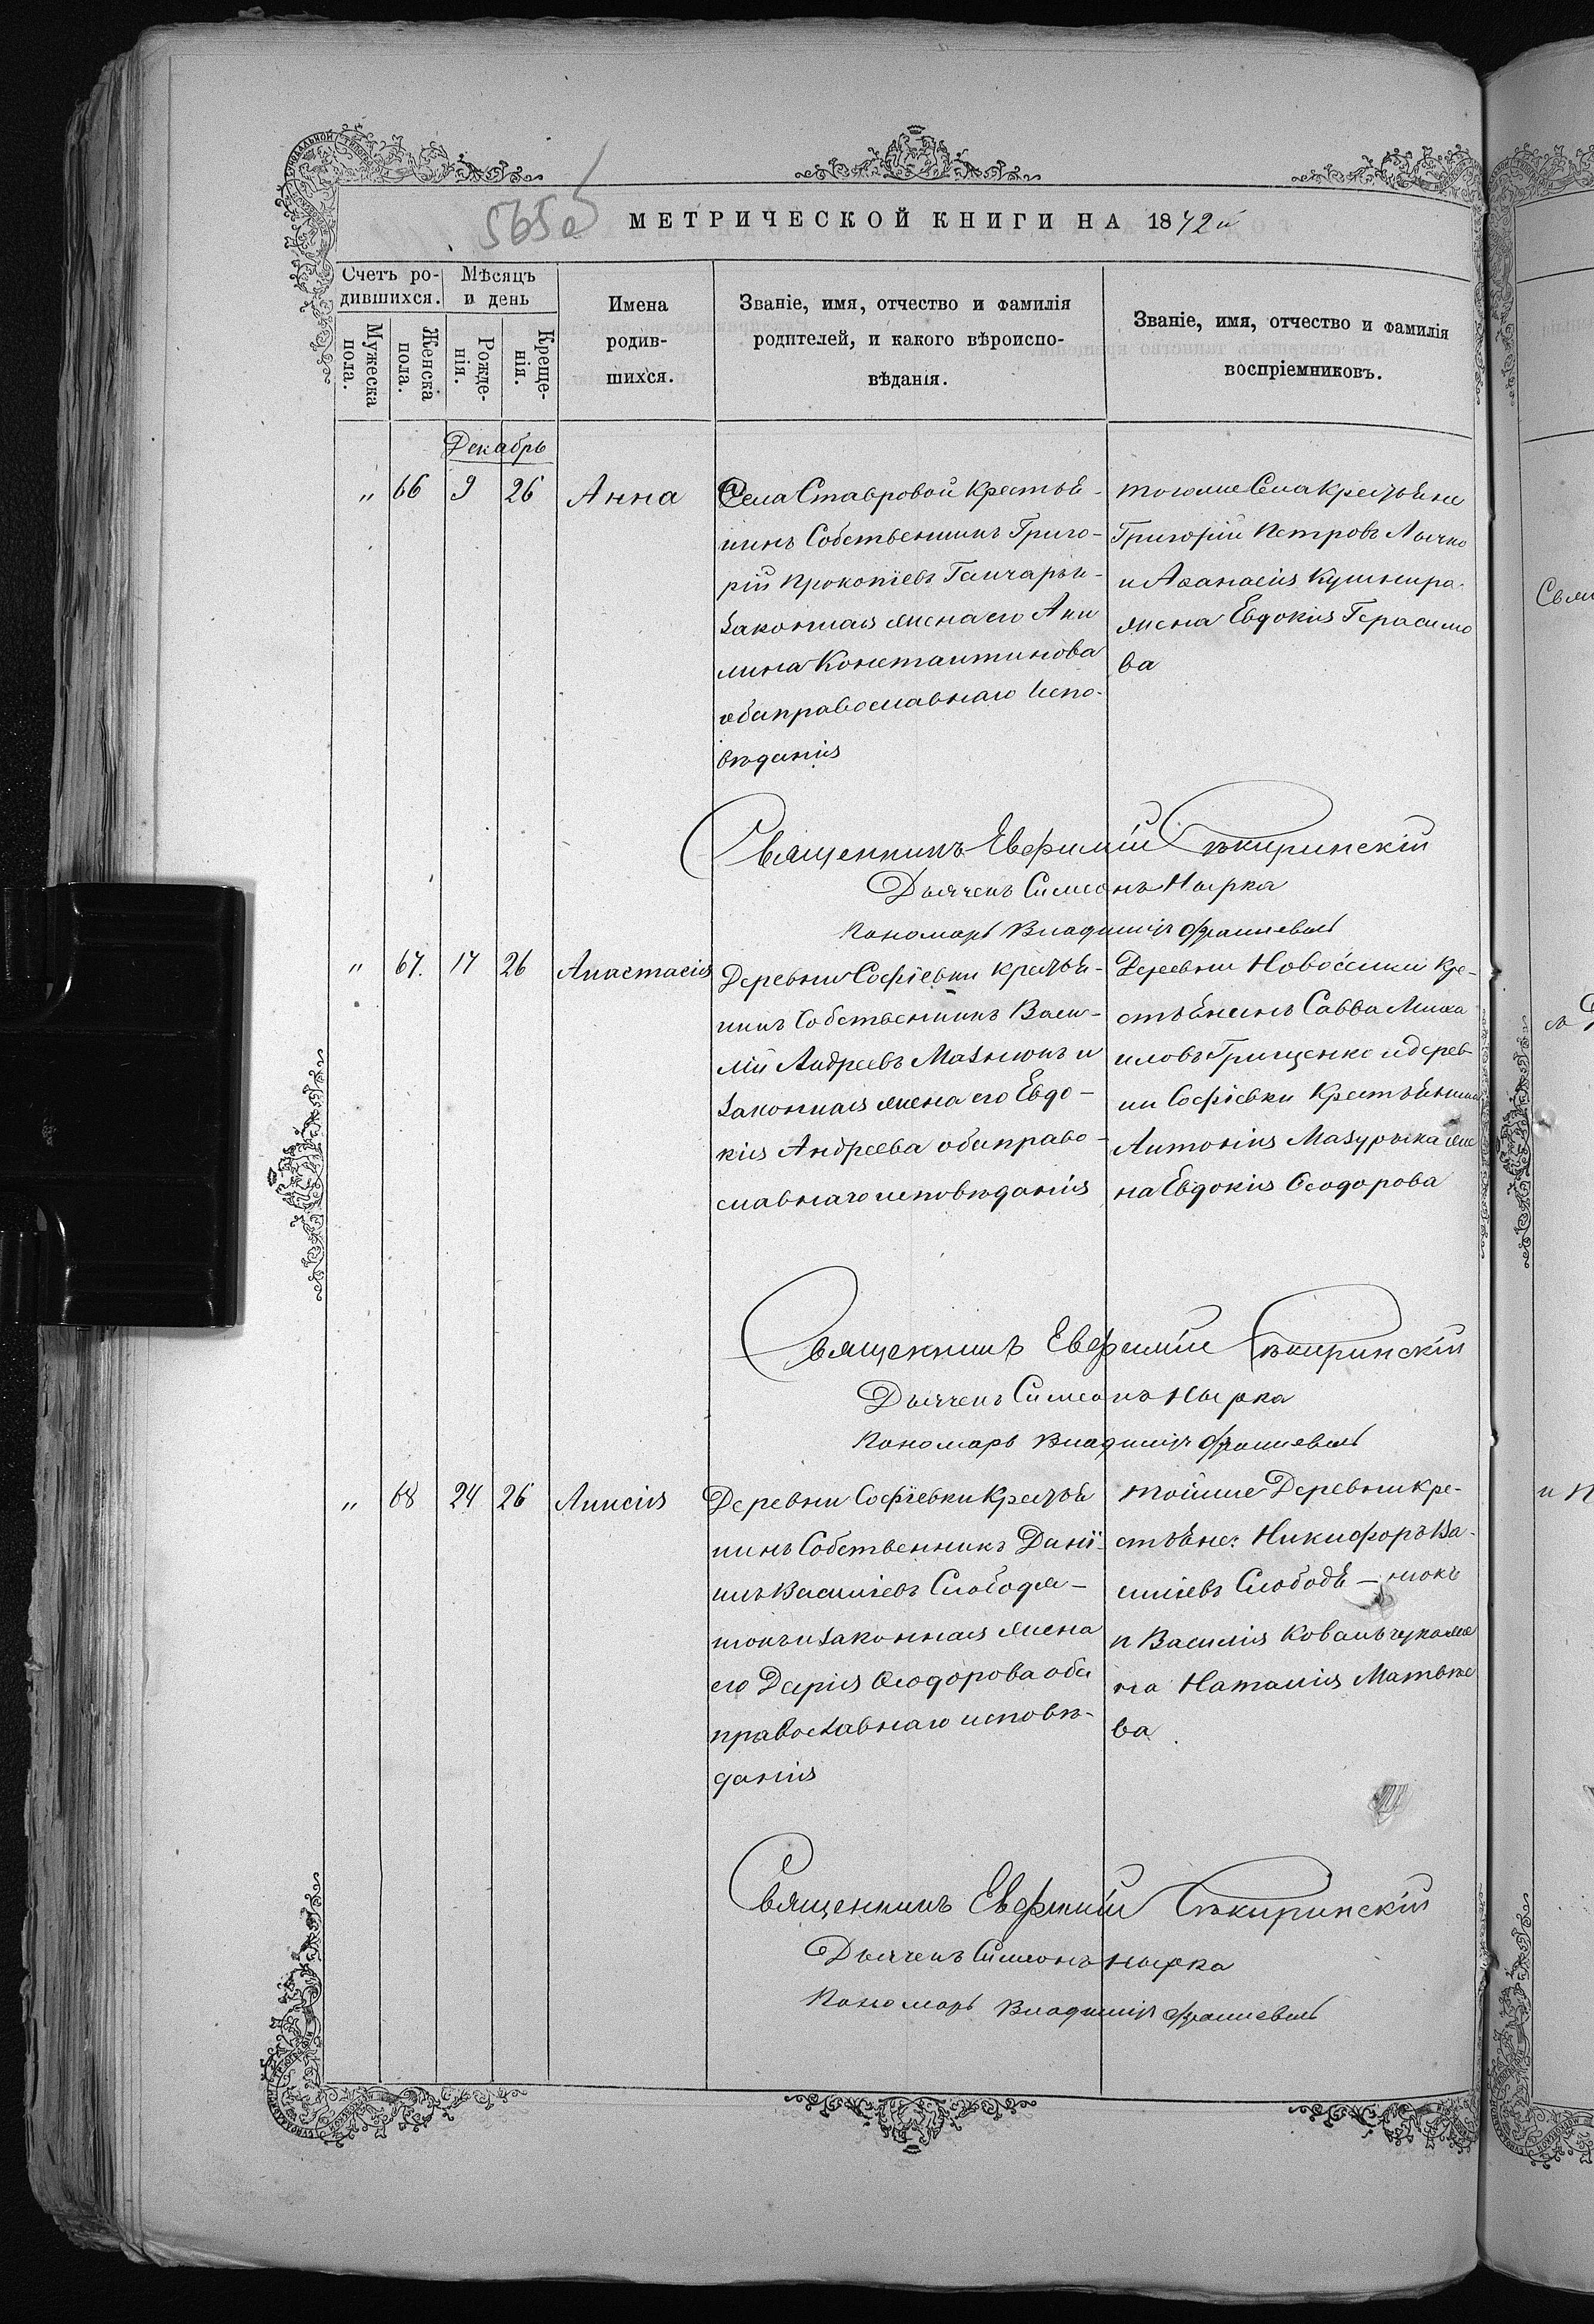 565 об
МЕТРИЧЕСКОЙ КНИГИ НА 1872й
Счетъ ро-
дившихся.
Мѣсяцъ
и день
Мужеска
пола.
Женска
пола.
Рожде-
нія.
Креще-
нія.
Имена
родив-
шихся.
Званіе, имя, отчество и фамилія
родителей, и какого вѣроиспо-
вѣданія.
Званіе, имя, отчество и фамилія
воспріемниковъ.
Декабрь
" 66 9 26 Анна
Села Ставровой Крестья-
нинъ Собственникъ Григо-
рій Прокопіевъ Ганчаръ и
законная жена его Аки
лина Константинова
оба православнаго испо-
вѣданія
тогоже Села Крестьяне
Григорій Петровъ
и Аѳанасія Кушнира
жена Евдокія Герасимо
ва
Священникъ Евфимій Сѣкиринскій
Дьячекъ Симеонъ Нырка
Пономарь Владиміръ
" 67. 17 26 Анастасія
Деревни Софіевки Крестья-
нинъ Собственникъ Васи-
лій Андреевъ Мазнюкъ и
законная жена его Евдо-
кія Андреева оба право-
славнаго исповѣданія
Деревни Новосёлки Кре-
стьянинъ Савва Миха
иловъ Грищенко и дерев-
ни Софіевки Крестьянина
Антонія Мазурыка же
на Евдокія Ѳеодорова
Священникъ Евфимій Сѣкиринскій
Дьячекъ Симеонъ Нырка
Пономарь Владиміръ
" 68 24 26 Анисія
Деревни Софіевки Крестья
нинъ Собственникъ Дані-
илъ Василіевъ Слободя-
нюкъ и законная жена
его Дарія Ѳеодорова оба
православнаго исповѣ-
данія
тойже Деревни Кре-
стьяне: Никифоръ Ва-
силіевъ Слободя-нюкъ
и Василія Ковальчука же
на Наталія Матвѣе
ва
Священникъ Евфимій Сѣкиринскій
Дьячекъ Симеонъ Нырка
Пономарь Владиміръ